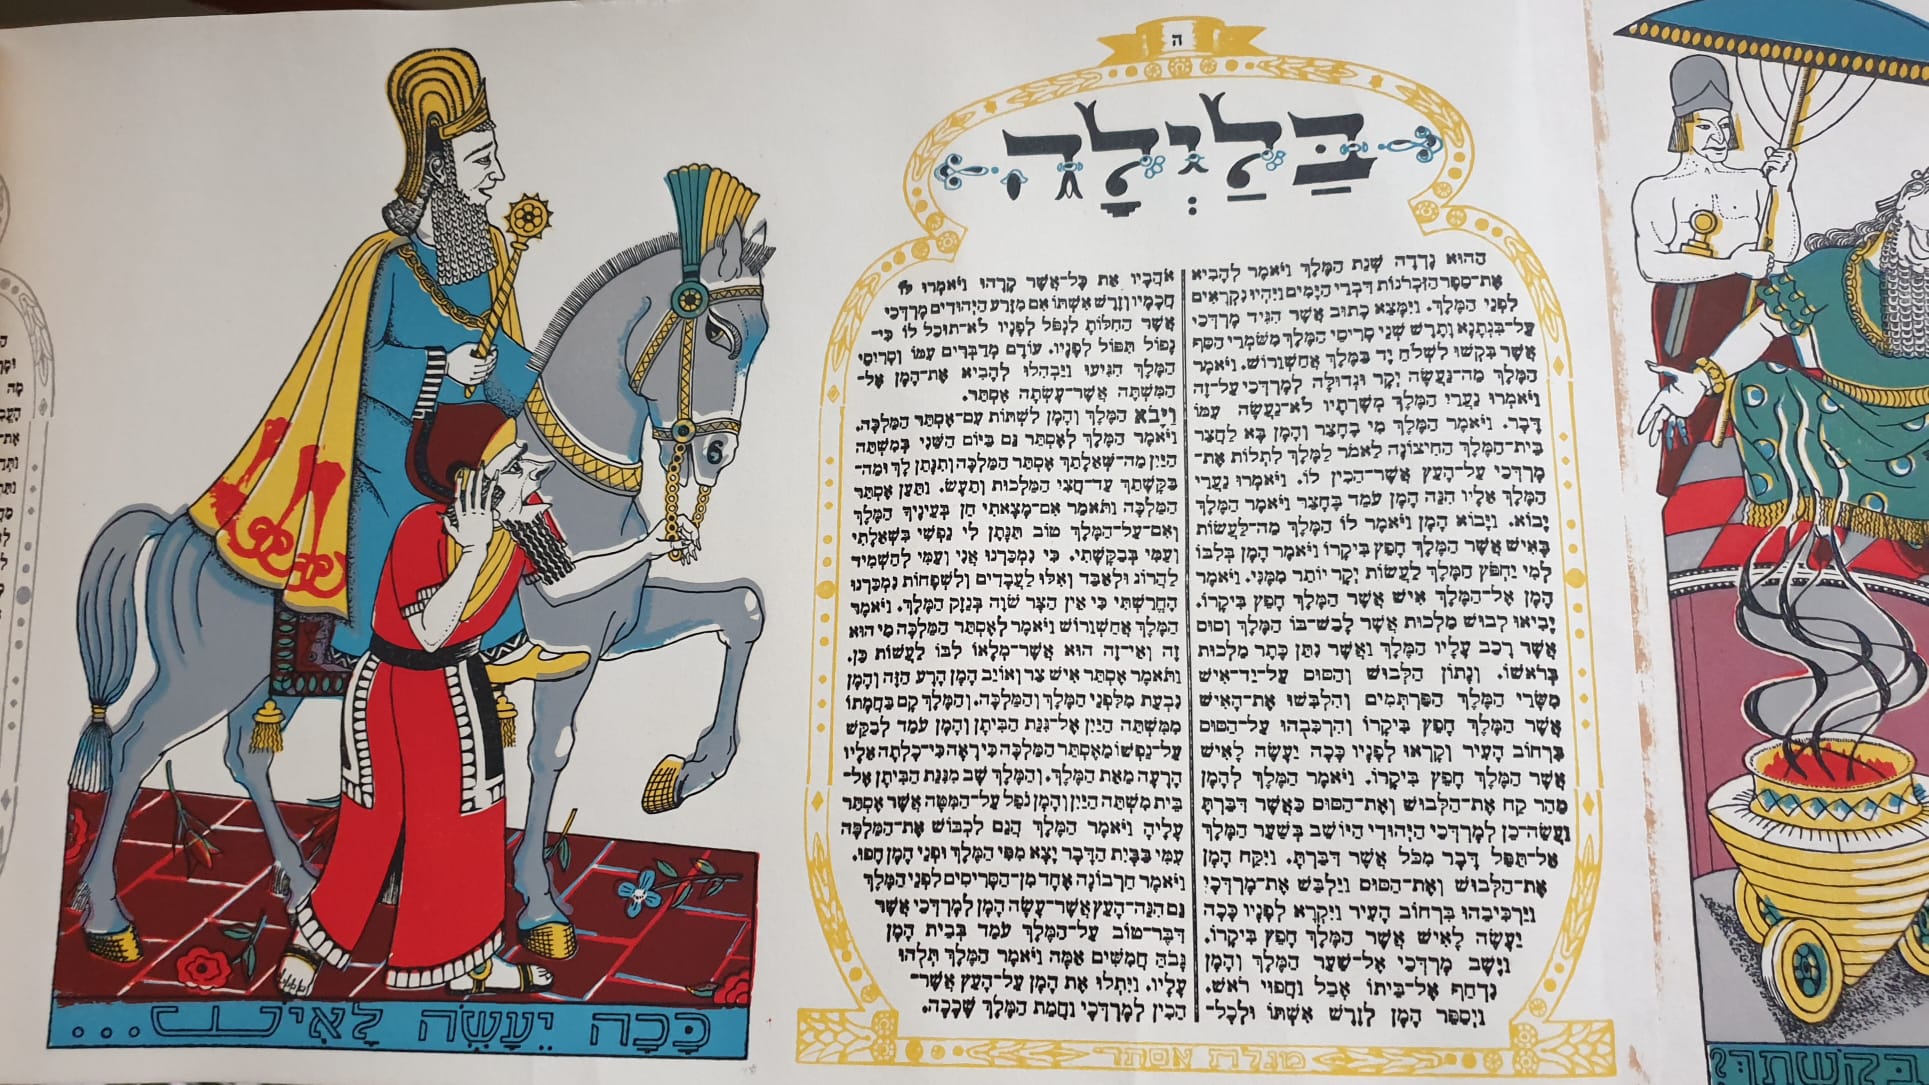 ה
בַּלַּיְלָה
הַהוּא נָדְדָה שְׁנַת הַמֶּלֶךְ וַיֹּאמֶר לְהָבִיא
אֶת־סֵפֶר הַזִּכְרֹנוֹת דִּבְרֵי הַיָּמִים וַיִּהְיוּ נִקְרָאִים
לִפְנֵי הַמֶּלֶךְ. וַיִּמָּצֵא כָתוּב אֲשֶׁר הִגִּיד מָרְדֳּכַי
עַל־בִּגְתָנָא וָתֶרֶשׁ שְׁנֵי סָרִיסֵי הַמֶּלֶךְ מִשֹּׁמְרֵי הַסַּף
אֲשֶׁר בִּקְשׁוּ לִשְׁלֹחַ יָד בַּמֶּלֶךְ אֲחַשְׁוֵרוֹשׁ. וַיֹּאמֶר
הַמֶּלֶךְ מַה־נַּעֲשָׂה יְקָר וּגְדוּלָּה לְמָרְדֳּכַי עַל־זֶה
וַיֹּאמְרוּ נַעֲרֵי הַמֶּלֶךְ מְשָׁרְתָיו לֹא־נַעֲשָׂה עִמּוֹ
דָּבָר. וַיֹּאמֶר הַמֶּלֶךְ מִי בֶחָצֵר וְהָמָן בָּא לַחֲצַר
בֵּית־הַמֶּלֶךְ הַחִיצוֹנָה לֵאמֹר לַמֶּלֶךְ לִתְלוֹת אֶת־
מָרְדֳּכַי עַל־הָעֵץ אֲשֶׁר־הֵכִין לוֹ. וַיֹּאמְרוּ נַעֲרֵי
הַמֶּלֶךְ אֵלָיו הִנֵּה הָמָן עֹמֵד בֶּחָצֵר וַיֹּאמֶר הַמֶּלֶךְ
יָבוֹא. וַיָּבוֹא הָמָן וַיֹּאמֶר לוֹ הַמֶּלֶךְ מַה־לַּעֲשׂוֹת
בָּאִישׁ אֲשֶׁר הַמֶּלֶךְ חָפֵץ בִּיקָרוֹ וַיֹּאמֶר הָמָן בְּלִבּוֹ
לְמִי יַחְפֹּץ הַמֶּלֶךְ לַעֲשׂוֹת יְקָר יוֹתֵר מִמֶּנִּי. וַיֹּאמֶר
הָמָן אֶל־הַמֶּלֶךְ אִישׁ אֲשֶׁר הַמֶּלֶךְ חָפֵץ בִּיקָרוֹ.
יָבִיאוּ לְבוּשׁ מַלְכוּת אֲשֶׁר לָבַשׁ־בּוֹ הַמֶּלֶךְ וְסוּס
אֲשֶׁר רָכַב עָלָיו הַמֶּלֶךְ וַאֲשֶׁר נִתַּן כֶּתֶר מַלְכוּת
בְּרֹאשׁוֹ. וְנָתוֹן הַלְּבוּשׁ וְהַסּוּס עַל־יַד־אִישׁ
מִשָּׂרֵי הַמֶּלֶךְ הַפַּרְתְּמִים וְהִלְבִּשׁוּ אֶת־הָאִישׁ
אֲשֶׁר הַמֶּלֶךְ חָפֵץ בִּיקָרוֹ וְהִרְכִּבֻהוּ עַל־הַסּוּס
בִּרְחוֹב הָעִיר וְקָרְאוּ לְפָנָיו כָּכָה יֵעָשֶׂה לָאִישׁ
אֲשֶׁר הַמֶּלֶךְ חָפֵץ בִּיקָרוֹ. וַיֹּאמֶר הַמֶּלֶךְ לְהָמָן
מַהֵר קַח אֶת־הַלְּבוּשׁ וְאֶת־הַסּוּס כַּאֲשֶׁר דִּבַּרְתָּ
וַעֲשֵׂה־כֵן לְמָרְדֳּכַי הַיְּהוּדִי הַיּוֹשֵׁב בְּשַׁעַר הַמֶּלֶךְ
אַל־תַּפֵּל דָּבָר מִכֹּל אֲשֶׁר דִּבַּרְתָּ. וַיִּקַּח הָמָן
אֶת־הַלְּבוּשׁ וְאֶת־הַסּוּס וַיַּלְבֵּשׁ אֶת־מָרְדֳּכָי
וַיַּרְכִּיבֵהוּ בִּרְחוֹב הָעִיר וַיִּקְרָא לְפָנָיו כָּכָה
יֵעָשֶׂה לָאִישׁ אֲשֶׁר הַמֶּלֶךְ חָפֵץ בִּיקָרוֹ.
וַיָּשָׁב מָרְדֳּכַי אֶל־שַׁעַר הַמֶּלֶךְ וְהָמָן
נִדְחַף אֶל־בֵּיתוֹ אָבֵל וַחֲפוּי רֹאשׁ.
וַיְסַפֵּר הָמָן לְזֶרֶשׁ אִשְׁתּוֹ וּלְכָל־
אֹהֲבָיו אֵת כָּל־אֲשֶׁר קָרָהוּ וַיֹּאמְרוּ לוֹ
חֲכָמָיו וְזֶרֶשׁ אִשְׁתּוֹ אִם מִזֶּרַע הַיְּהוּדִים מָרְדֳּכַי
אֲשֶׁר הַחִלּוֹתָ לִנְפֹּל לְפָנָיו לֹא־תוּכַל לוֹ כִּי־
נָפוֹל תִּפּוֹל לְפָנָיו. עוֹדָם מְדַבְּרִים עִמּוֹ וְסָרִיסֵי
הַמֶּלֶךְ הִגִּיעוּ וַיַּבְהִלוּ לְהָבִיא אֶת־הָמָן אֶל־
הַמִּשְׁתֶּה אֲשֶׁר־עָשְׂתָה אֶסְתֵּר.
וַיָּבֹא הַמֶּלֶךְ וְהָמָן לִשְׁתּוֹת עִם־אֶסְתֵּר הַמַּלְכָּה.
וַיֹּאמֶר הַמֶּלֶךְ לְאֶסְתֵּר גַּם בַּיּוֹם הַשֵּׁנִי בְּמִשְׁתֵּה
הַיַּיִן מַה־שְּׁאֵלָתֵךְ אֶסְתֵּר הַמַּלְכָּה וְתִנָּתֵן לָךְ וּמַה־
בַּקָּשָׁתֵךְ עַד־חֲצִי הַמַּלְכוּת וְתֵעָשׂ. וַתַּעַן אֶסְתֵּר
הַמַּלְכָּה וַתֹּאמַר אִם־מָצָאתִי חֵן בְּעֵינֶיךָ הַמֶּלֶךְ
וְאִם־עַל־הַמֶּלֶךְ טוֹב תִּנָּתֶן לִי נַפְשִׁי בִּשְׁאֵלָתִי
וְעַמִּי בְּבַקָּשָׁתִי. כִּי נִמְכַּרְנוּ אֲנִי וְעַמִּי לְהַשְׁמִיד
לַהֲרוֹג וּלְאַבֵּד וְאִלּוּ לַעֲבָדִים וְלִשְׁפָחוֹת נִמְכַּרְנוּ
הֶחֱרַשְׁתִּי כִּי אֵין הַצָּר שֹׁוֶה בְּנֵזֶק הַמֶּלֶךְ. וַיֹּאמֶר
הַמֶּלֶךְ אֲחַשְׁוֵרוֹשׁ וַיֹּאמֶר לְאֶסְתֵּר הַמַּלְכָּה מִי הוּא
זֶה וְאֵי־זֶה הוּא אֲשֶׁר־מְלָאוֹ לִבּוֹ לַעֲשׂוֹת כֵּן.
וַתֹּאמֶר אֶסְתֵּר אִישׁ צַר וְאוֹיֵב הָמָן הָרָע הַזֶּה וְהָמָן
נִבְעַת מִלִּפְנֵי הַמֶּלֶךְ וְהַמַּלְכָּה. וְהַמֶּלֶךְ קָם בַּחֲמָתוֹ
מִמִּשְׁתֵּה הַיַּיִן אֶל־גִּנַּת הַבִּיתָן וְהָמָן עָמַד לְבַקֵּשׁ
עַל־נַפְשׁוֹ מֵאֶסְתֵּר הַמַּלְכָּה כִּי רָאָה כִּי־כָלְתָה אֵלָיו
הָרָעָה מֵאֵת הַמֶּלֶךְ. וְהַמֶּלֶךְ שָׁב מִגִּנַּת הַבִּיתָן אֶל־
בֵּית מִשְׁתֵּה הַיַּיִן וְהָמָן נֹפֵל עַל־הַמִּטָּה אֲשֶׁר אֶסְתֵּר
עָלֶיהָ וַיֹּאמֶר הַמֶּלֶךְ הֲגַם לִכְבּוֹשׁ אֶת־הַמַּלְכָּה
עִמִּי בַּבָּיִת הַדָּבָר יָצָא מִפִּי הַמֶּלֶךְ וּפְנֵי הָמָן חָפוּ.
וַיֹּאמֶר חַרְבוֹנָה אֶחָד מִן־הַסָּרִיסִים לִפְנֵי הַמֶּלֶךְ
גַּם הִנֵּה־הָעֵץ אֲשֶׁר־עָשָׂה הָמָן לְמָרְדֳּכַי אֲשֶׁר
דִּבֶּר־טוֹב עַל־הַמֶּלֶךְ עֹמֵד בְּבֵית הָמָן
גָּבֹהַּ חֲמִשִּׁים אַמָּה וַיֹּאמֶר הַמֶּלֶךְ תְּלֻהוּ
עָלָיו. וַיִּתְלוּ אֶת הָמָן עַל־הָעֵץ אֲשֶׁר־
הֵכִין לְמָרְדֳּכָי וַחֲמַת הַמֶּלֶךְ שָׁכָכָה.
מגלת אסתר
כָּכָה יֵעָשֶׂה לָאִישׁ...
בַּקָּשָׁתֵךְ?